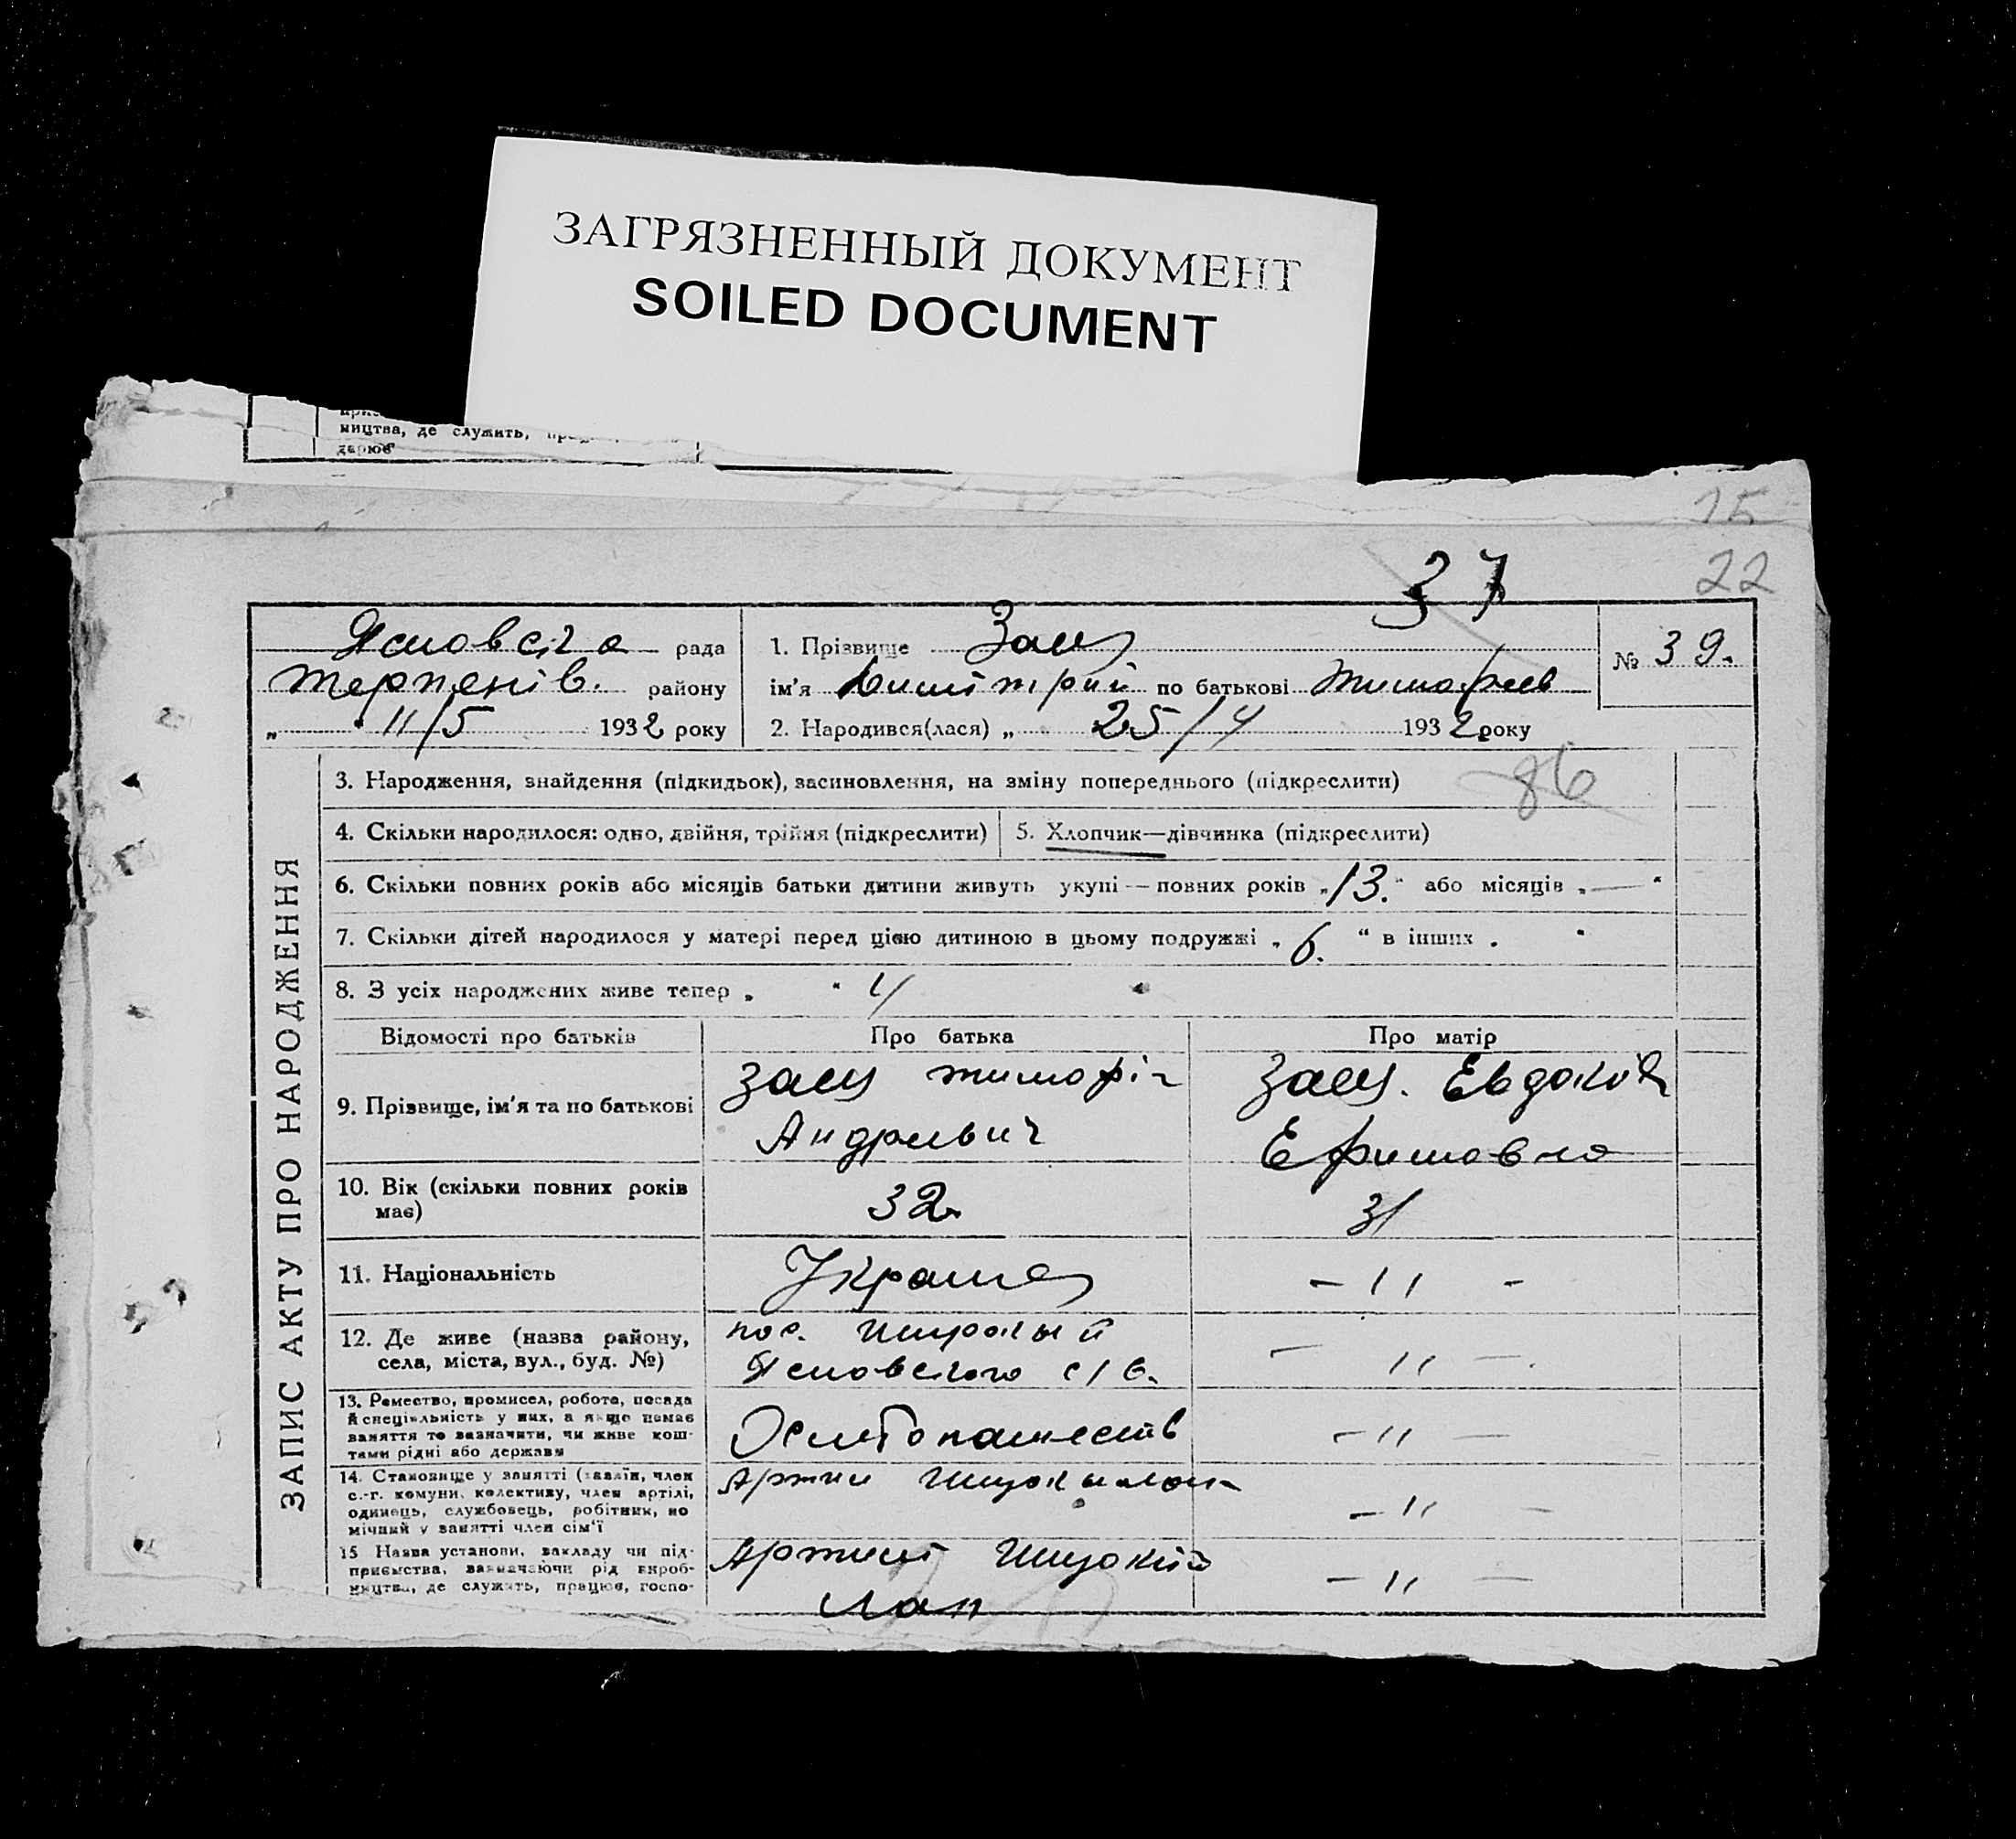 ЗАГРЯЗНЕННЫЙ ДОКУМЕНТ
SOILED DOCUMENT
ництва, де служить,
дарює
15
22
37
рада
1. Прізвище Заец
№ 39.
району
ім'я Димітрий по батькові Тимофеев
11/5 1932 року
2. Народився(лася) „ 25/4 1932 року
86
ЗАПИС АКТУ ПРО НАРОДЖЕННЯ
3. Народження, знайдення (підкидьок), засиновлення, на зміну попереднього (підкреслити)
4. Скільки народилося: одно, двійня, трійня (підкреслити)
5. Хлопчик—дівчинка (підкреслити)
6. Скільки повних років або місяців батьки дитини живуть укупі — повних років „13.“ або місяців „—“
7. Скільки дітей народилося у матері перед цією дитиною в цьому подружжі „6.“ в інших „ “
8. З усіх народжених живе тепер „ “ 4
Відомості про батьків
Про батька
Про матір
9. Прізвище, ім'я та по батькові
Заец Тимофій
Андреевич
Заец. Евдокія
Ефимовна
10. Вік (скільки повних років
має)
32
31
11. Національність
Украинец
— 〃 —
12. Де живе (назва району,
села, міста, вул., буд. №)
пос. Широкый
— 〃 —
13. Ремество, промисел, робота, посада
й спеціяльність у них, а якщо немає
заняття то зазначити, чи живе кош-
тами рідні або держави
— 〃 —
14. Становище у занятті (хазяїн, член
с.-г. комуни, колективу, член артілі,
одинець, службовець, робітник, по
мічний у занятті член сім'ї
— 〃 —
15 Назва установи, закладу чи під-
приємства, зазначаючи рід вироб-
ництва, де служить, працює, госпо-
Лан
— 〃 —